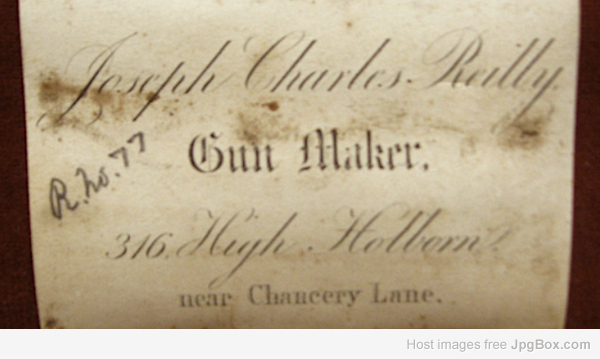 Joseph Charles Reilly.
Gun Maker.
R. No. 77
316. High Holborn
near Chancery Lane.
Host images free JpgBox.com